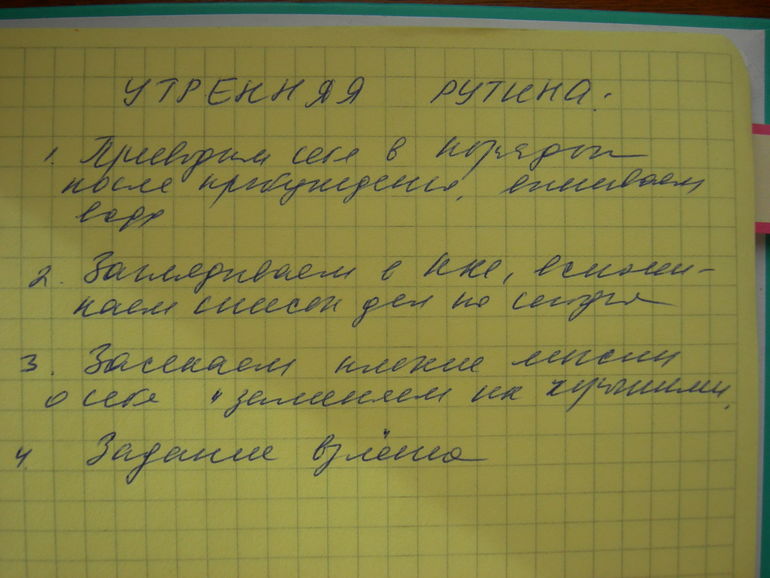 УТРЕННЯЯ РУТИНА:
1. Приводим себя в порядок
после пробуждения, выпиваем
воду
2. Заглядываем в ККС, вспоми-
наем список дел на сегодня
3. Засекаем плохие мысли
о себе и заменяем их хорошими.
4. Задание взлёта